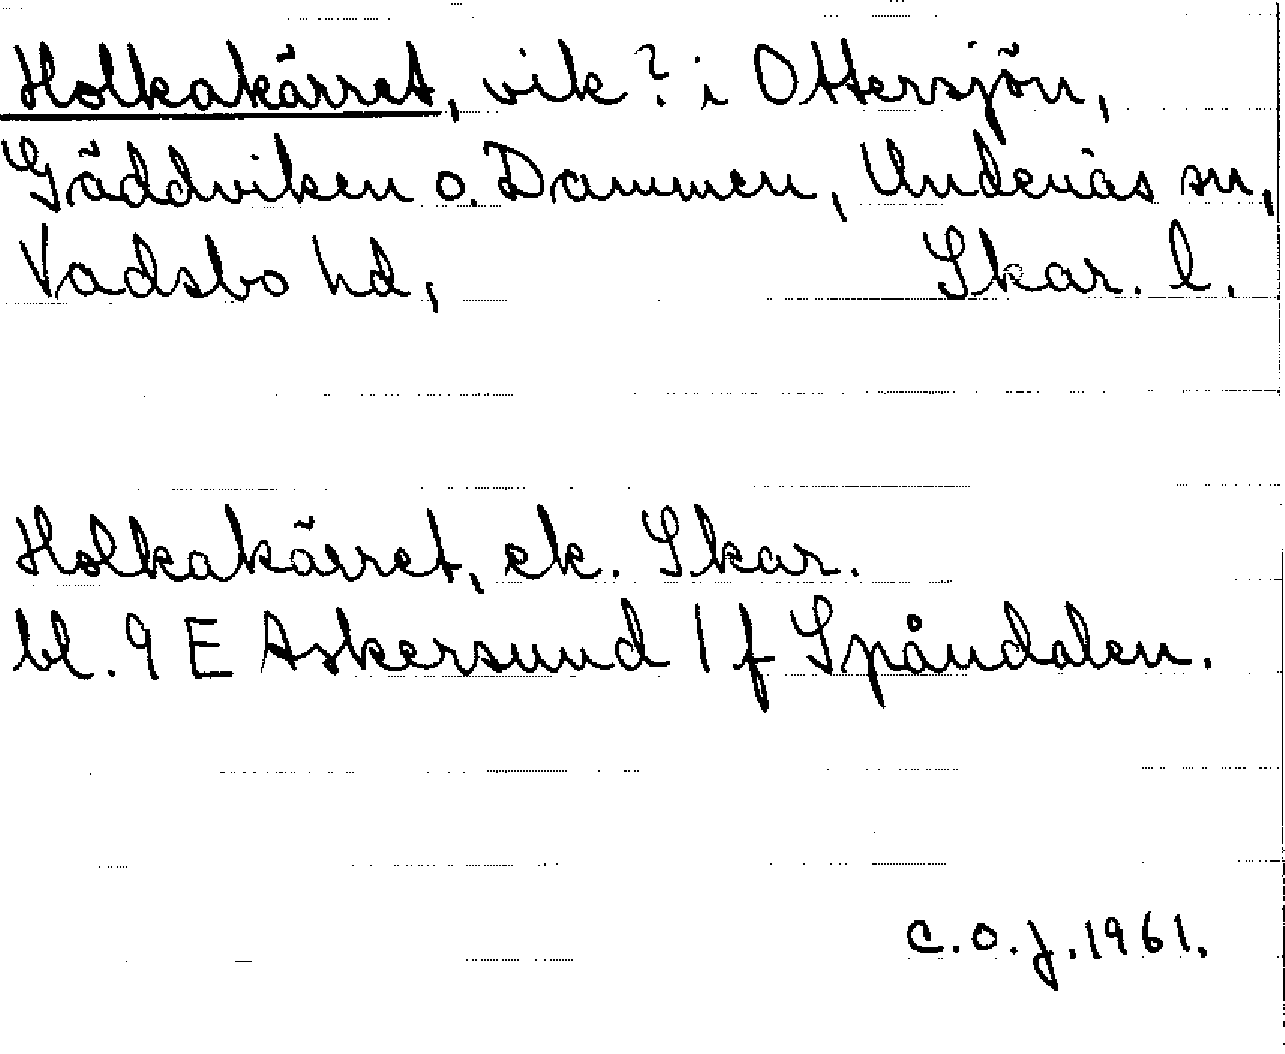 Holkakärret, vik? i Ottersjön,
Gäddviken o. Dammen, Undenäs sn,
Vadsbo hd, Skar. l.
Holkakärret, ek. Skar.
bl. 9 E Askersund 1 f Spåndalen.
C.O.J. 1961.